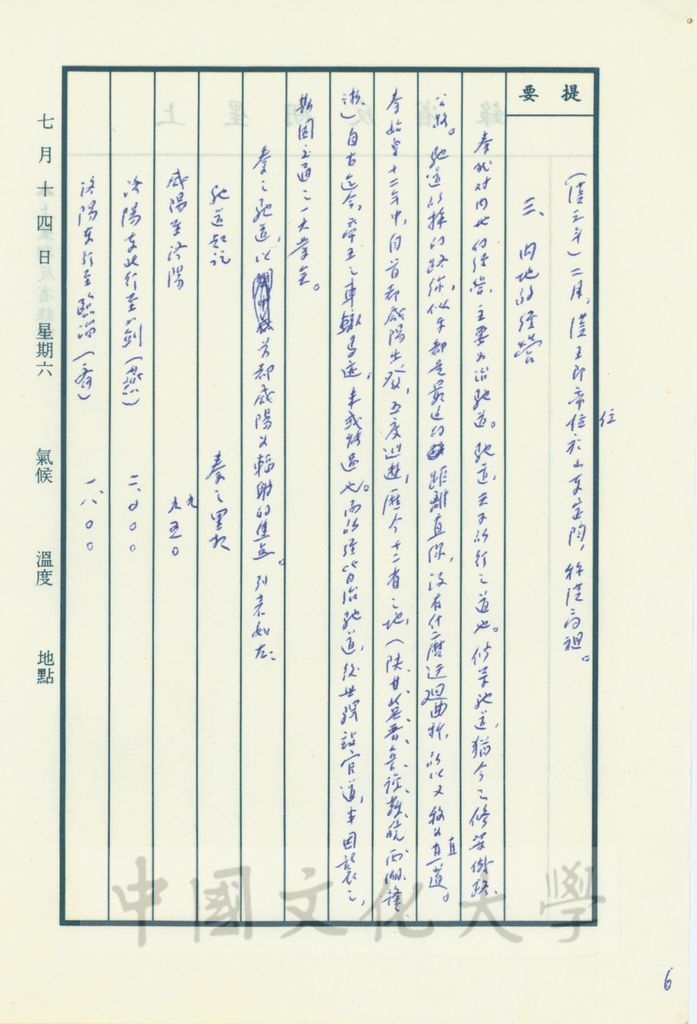 提要
(漢五年)二月，漢王即帝位於山東定陶，称漢高祖。
位
三、內地的經營
秦代对內地的經營，主要為治馳道。馳道，天子所行之道也。修築馳道，猶今之修築鐵路、
公路。馳道所採的路線，似乎都是最近的距離直線，沒有什麼迂迴曲折，所以又称為直道。
秦始皇十二年中，自首都咸陽出發，五度巡遊，歷今十二省之地，(陝、甘、冀、晉、魯、蘇、皖、
浙)自古迄今，帝王之車轍馬迹，未或能過也。而所經皆治馳道，後世釋設官道，率因襲之，
斯固交通之一大業也。
秦之馳道，以首都咸陽為輻射的焦點。列表如左：
馳道起訖 秦之里數
咸陽至洛陽 九五〇
洛陽東北行至薊(燕) 二、〇〇〇
洛陽東行至臨淄(齊) 一八〇〇
七月十四日 星期六 氣候 溫度 地點
中國文化大學
6